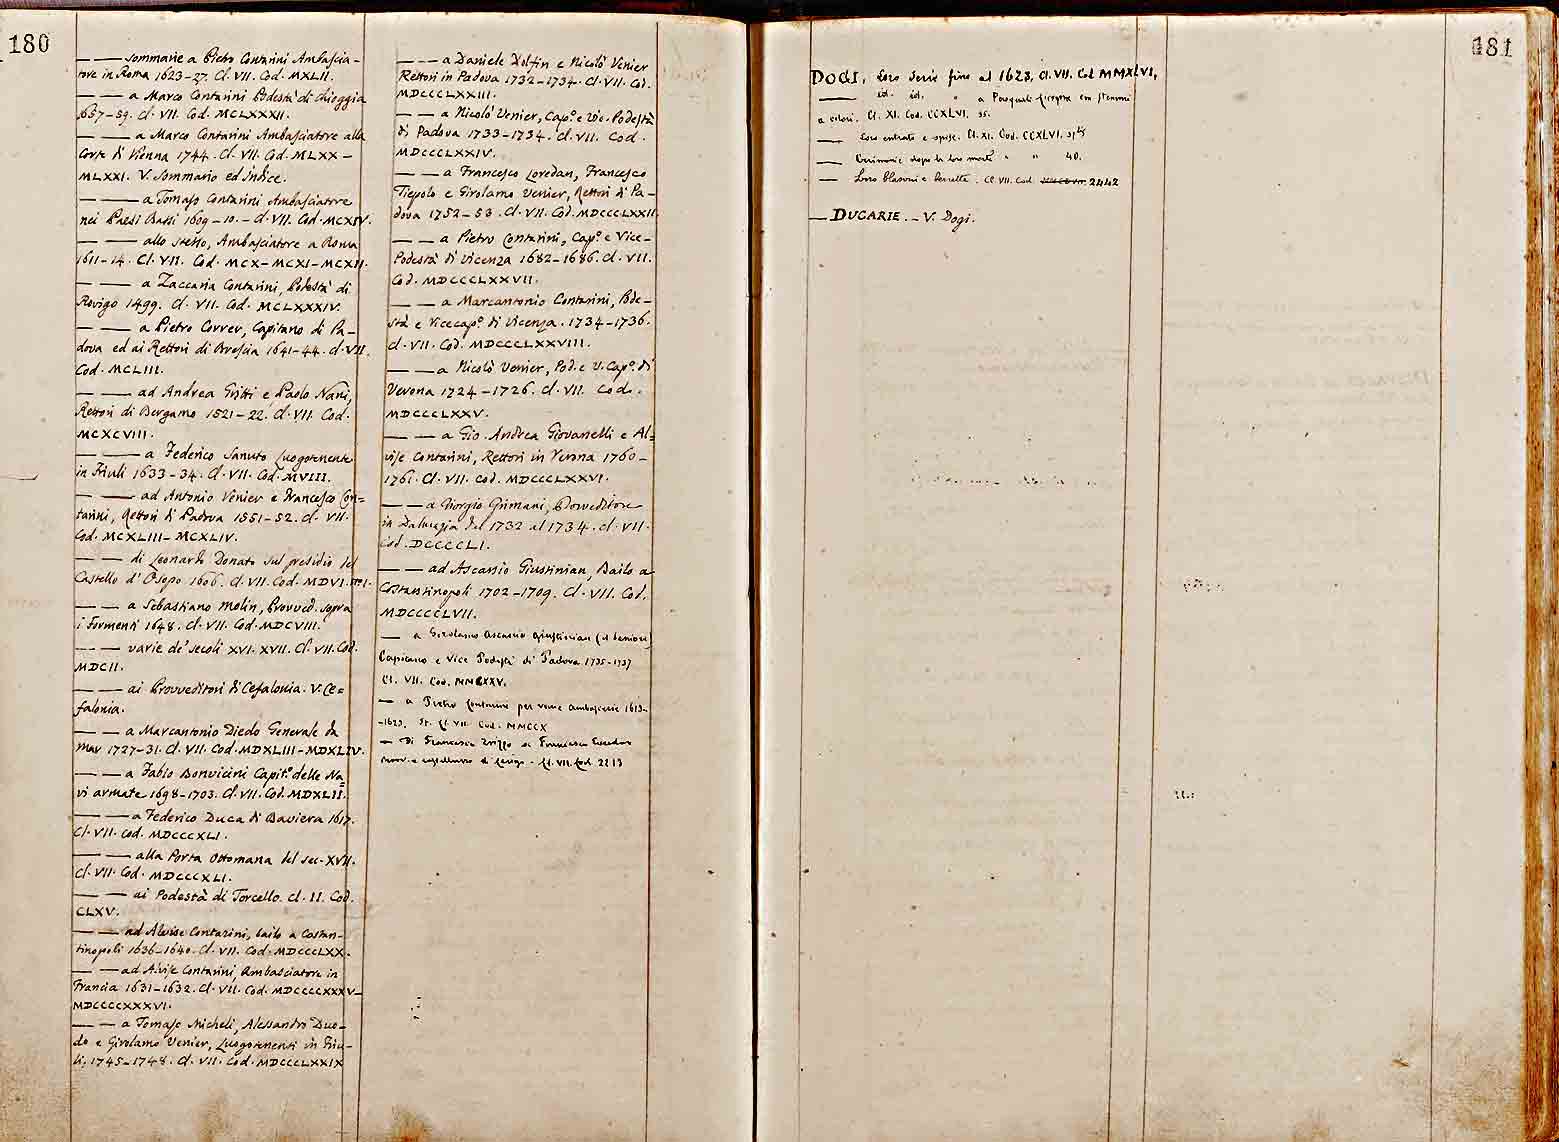 180
— — sommarie a Pietro Contarini Ambascia-
tore in Roma 1623-27. Cl. VII. Cod. MXLII.
— — a Marco Contarini Podestà di Chioggia
1657-59. Cl. VII. Cod. MCLXXXII.
— — a Marco Contarini Ambasciatore alla
Corte di Vienna 1744. Cl. VII. Cod. MLXX-
MLXXI. V. Sommario ed Indice.
— — a Tomaso Contarini Ambasciatore
nei Paesi Bassi 1609-10. - Cl. VII. Cod. MCXIV.
— — allo stesso, Ambasciatore a Roma
1611-14. Cl. VII. Cod. MCX-MCXI-MCXII.
— — a Zaccaria Contarini, Podestà di
Rovigo 1499. Cl. VII. Cod. MCLXXXIV.
— — a Pietro Correr, Capitano di Pa-
dova ed ai Rettori di Brescia 1641-44. Cl. VII.
Cod. MCLIII.
— — ad Andrea Gritti e Paolo Nani,
Rettori di Bergamo 1521-22. Cl. VII. Cod.
MCXCVIII.
— — a Federico Sanuto Luogotenente
in Friuli 1633-34. Cl. VII. Cod. MVIII.
— — ad Antonio Venier e Francesco Con=
tarini, Rettori di Padova 1551-52. Cl. VII.
Cod. MCXLIII-MCXLIV.
— — di Leonardo Donato sul presidio del
Castello d'Osopo 1606. Cl. VII. Cod. MDVI. n° 1.
— — a Sebastiano Molin, Provved. sopra
i Formenti 1648. Cl. VII. Cod. MDCVIII.
— — varie de' secoli XVI. XVII. Cl. VII. Cod.
MDCII.
— — ai Provveditori di Cefalonia. V. Ce=
falonia.
— — a Marcantonio Diedo Generale da
Mar 1727-31. Cl. VII. Cod. MDXLIII-MDXLIV.
— — a Fabio Bonvicini Capit.° delle Na=
vi armate 1698-1703. Cl. VII. Cod. MDXLII.
— — a Federico Duca di Baviera 1617.
Cl. VII. Cod. MDCCCXLI.
— — alla Porta Ottomana del sec. XVII.
Cl. VII. Cod. MDCCCXLI.
— — ai Podestà di Torcello. Cl. II. Cod.
CLXV.
— — ad Aloise Contarini, bailo a Costan-
tinopoli 1636-1640. Cl. VII. Cod. MDCCCLXX.
— — ad Alvise Contarini, Ambasciatore in
Francia 1631-1632. Cl. VII. Cod. MDCCCCXXXV-
MDCCCCXXXVI.
— — a Tomaso Micheli, Alessandro Duo-
do e Girolamo Venier, Luogotenenti in Friu-
li, 1745-1748. Cl. VII. Cod. MDCCCLXXIX
— — a Daniele Dolfin e Nicolò Venier
Rettori in Padova 1732-1734. Cl. VII. Cod.
MDCCCLXXIII.
— — a Nicolò Venier, Cap.° e Vic. Podestà
di Padova 1733-1734. Cl. VII. Cod.
MDCCCLXXIV.
— — a Francesco Loredan, Francesco
Tiepolo e Girolamo Venier, Rettori di Pa-
dova 1752-53. Cl. VII. Cod. MDCCCLXXII.
— — a Pietro Contarini, Cap.° e Vice-
Podestà di Vicenza 1682-1686. Cl. VII.
Cod. MDCCCLXXVII.
— — a Marcantonio Contarini, Pode-
stà e Vicecap.° di Vicenza. 1734-1736.
Cl. VII. Cod. MDCCCLXXVIII.
— — a Nicolò Venier, Pod. e V. Cap.° di
Verona 1724-1726. Cl. VII. Cod.
MDCCCLXXV.
— — a Gio. Andrea Giovanelli e Al=
vise Contarini, Rettori in Verona 1760-
1761. Cl. VII. Cod. MDCCCLXXVI.
— — a Giorgio Grimani, Provveditore
in Dalmazia dal 1732 al 1734. Cl. VII.
Cod. DCCCCLI.
— — ad Ascanio Giustinian, Bailo a
Costantinopoli 1702-1709. Cl. VII. Cod.
MDCCCCLVII.
— a Girolamo Ascanio Giustinian (il seniore)
Capitano e Vice Podestà di Padova 1735-1737
Cl. VII. Cod. MMCXXV.
— a Pietro Contarini per varie ambascerie 1613-
-1623. Cl. VII. Cod. MMCCX
— Di Francesco a Francesco
e di Rovigo. Cl. VII. Cod. 2213
181
DOGI, loro serie fino al 1623. Cl. VII. Cod. MMXLVI.
— id. id. " a Pasquale Cicogna con stemmi
a colori. Cl. XI. Cod. CCXLVI. 35.
— Loro entrate e spese. Cl. XI. Cod. CCXLVI.
— Cerimonie dopo la loro morte " " 40.
— Loro blasoni e berretta. Cl. VII. Cod. 2442
— DUCARIE. - V. Dogi.